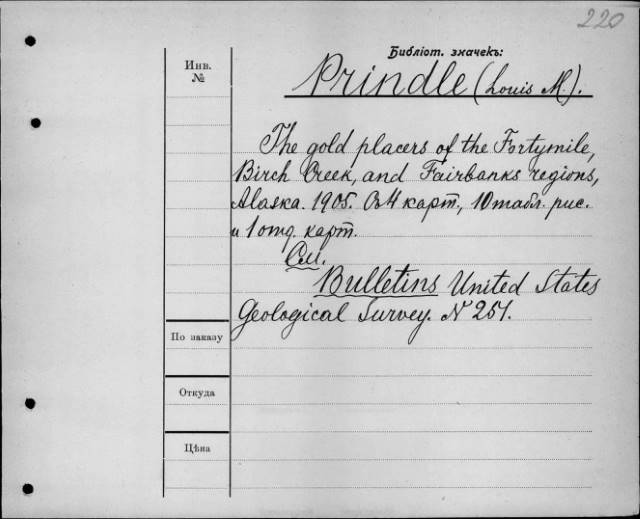 220
Библіот. значекъ:
Инв.
№
Prindle (Louis M.).
The gold placers of the Fortymile,
Birch Creek, and Fairbanks regions,
Alaska. 1905. Съ 4 карт., 10 табл. рис.
и 1 отд. карт.
См.
Bulletins United States
Geological Survey. N 251.
По заказу
Откуда
Цѣна